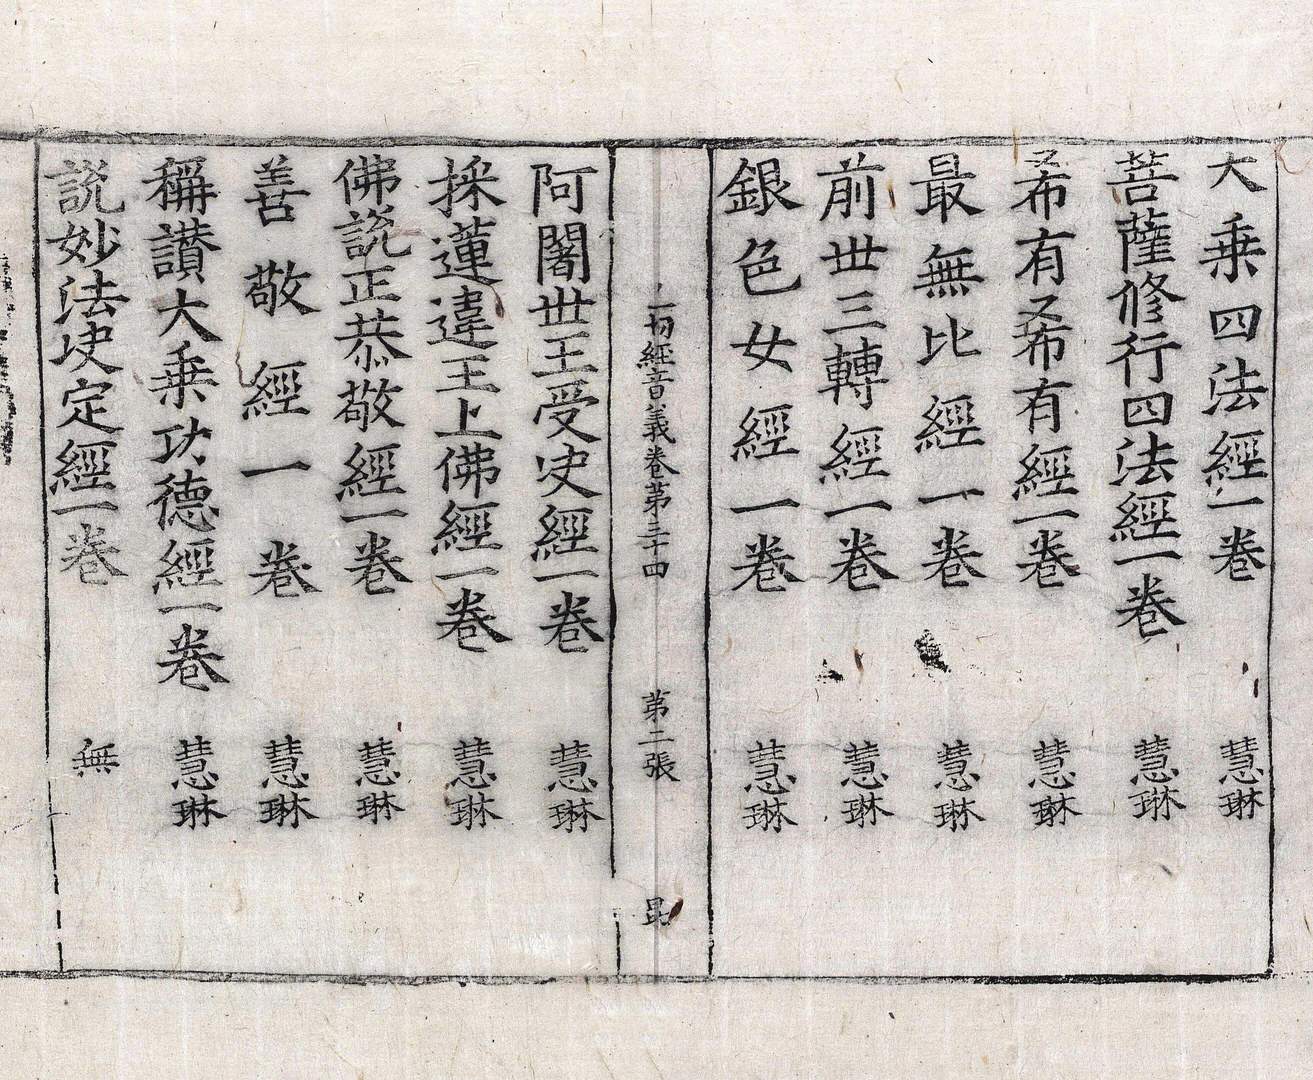 大乗四法經一卷 慧琳
菩薩修行四法經一卷 慧琳
希有希有經一卷 慧琳
最無比經一卷 慧琳
前世三轉經一卷 慧琳
銀色女經一卷 慧琳
一切經音義卷第三十四 第二張 昆
阿闍世王受决經一卷 慧琳
採蓮違王上佛經一卷 慧琳
佛說正恭敬經一卷 慧琳
善敬經一卷 慧琳
稱讃大乗功德經一卷 慧琳
說妙法决定經一卷 無